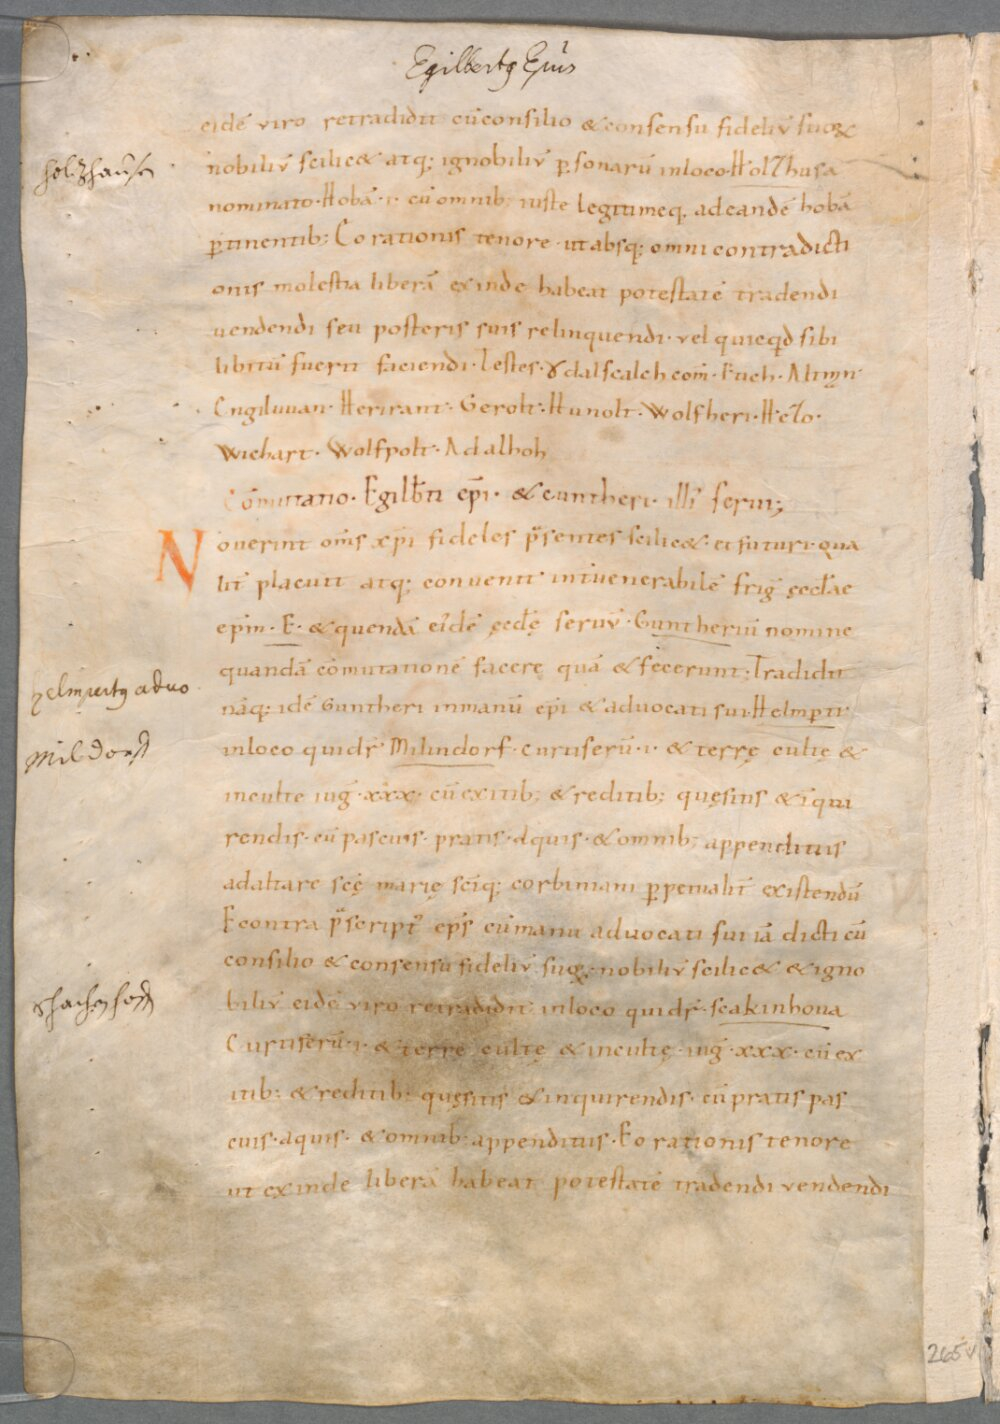 Egilbertꝯ Ep̄us
eidē viro retradidit cū consilio & consensu fideliū suoꝝ
holtzhausen
nobiliū scilic& atq; ignobiliū p̱sonarū in loco Holzhusa
nominato · Hobā · i · cū omnib; iuste legitimeq; ad eandē hobā
p̱tinentib; Eo rationis tenore · ut absq; omni contradicti
onis molestia liberā exinde habeat potestatē tradendi
uendendi seu posteris suis relinquendi · vel quicq̇d sibi
libitū fuerit faciendi · Testes · Ȯdalscalch com̄ · Etich · Altmꝯn
Engiluuan · Herirant · Gerolt · Hunolt · Wolfheri · Hezo ·
Wichart · Wolfpolt · Adalhoh
Cōmutatio · Egilb̄ti ep̄i · & Guntheri · illi᷒ serui;
Nouerint om̄s xp̄i fideles p̄sentes scilic& · et futuri · qua
lit̄ placuit atq; conuenit int̄ uenerabilē friḡ ęccl̄ae
ep̄m · E · & quendā ei᷒dē ęccl̄ę seruū · Guntheriū nomine
quandā cōmutationē facere quā & fecerunt; Tradidit
helmpertꝯ aduo
nāq; idē Guntheri in manū ep̄i & aduocati sui Helmp̱ti
Mildorf
in loco qui dr̄ Milindorf · curtiferū · i · & terrę cultę &
inculte iug̃ · xxx · cū exitib; & reditib; quęsitis & īqui
rendis · cū pascuis · pratis · aquis · & omnib; appenditiis
ad altare scē marię scīq; corbiniani p̱petualit̄ existendū
Econtra p̄script᷒ ep̄s cū manu aduocati sui iā dicti cū
consilio & consensu fideliū suoꝝ · nobiliū scilic& & igno
Schachenhoff
biliū eidē viro retradidit in loco qui dr̄ · scakinhoua
Curtiferū · i · & terre cultę & incultę · iug̃ · xxx · cū ex
itib; & reditib; quęsitis & inquirendis · cū pratis pas
cuis · aquis · & omnib; appenditiis · Eo rationis tenore
ut exinde liberā habeat potestatē tradendi vendendi
265v